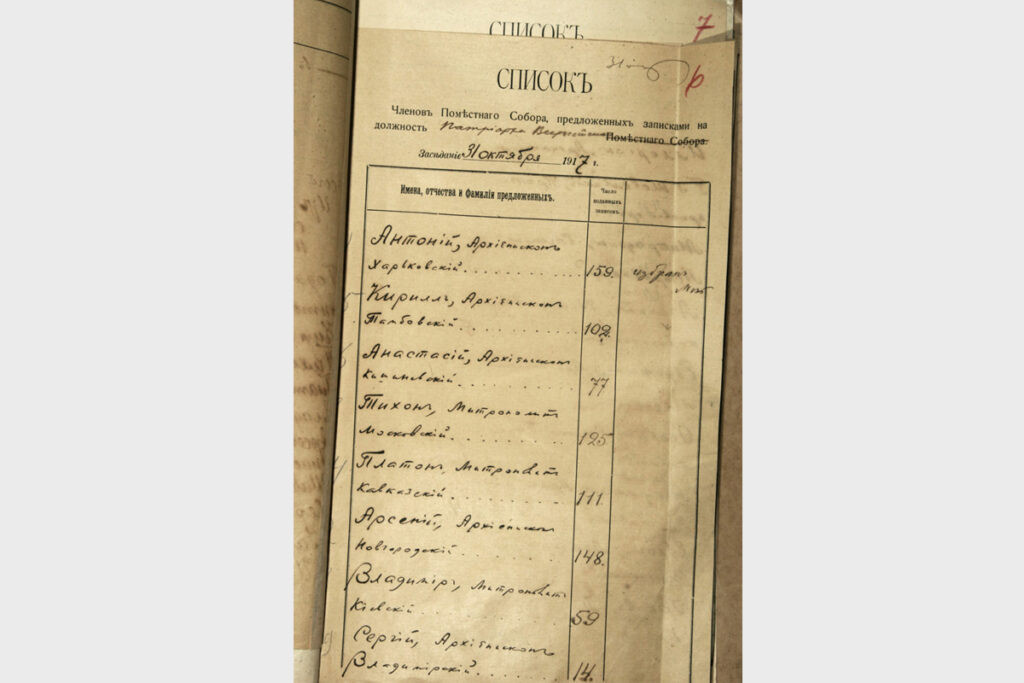 СПИСОКЪ
7
31 окт
6
СПИСОКЪ
Членовъ Помѣстнаго Собора, предложенныхъ записками на
должность Патріарха Помѣстнаго Собора.
Засѣданіе 31 октября 1917 г.
Имена, отчества и фамиліи предложенныхъ.
Число
поданныхъ
записокъ.
Антоній, Архіепископъ
Харьковскій 159. избранъ
Кириллъ, Архіепископъ
Тамбовскій 102.
Анастасій, Архіепископъ
Кишиневскій 77
Тихонъ, Митрополитъ
Московскій 125
Платонъ, Митрополитъ
Кавказскій 111.
Арсеній, Архіепископъ
Новгородскій 148.
Владиміръ, Митрополитъ
Кіевскій 59
Сергій, Архіепископъ
Владимірскій 14.